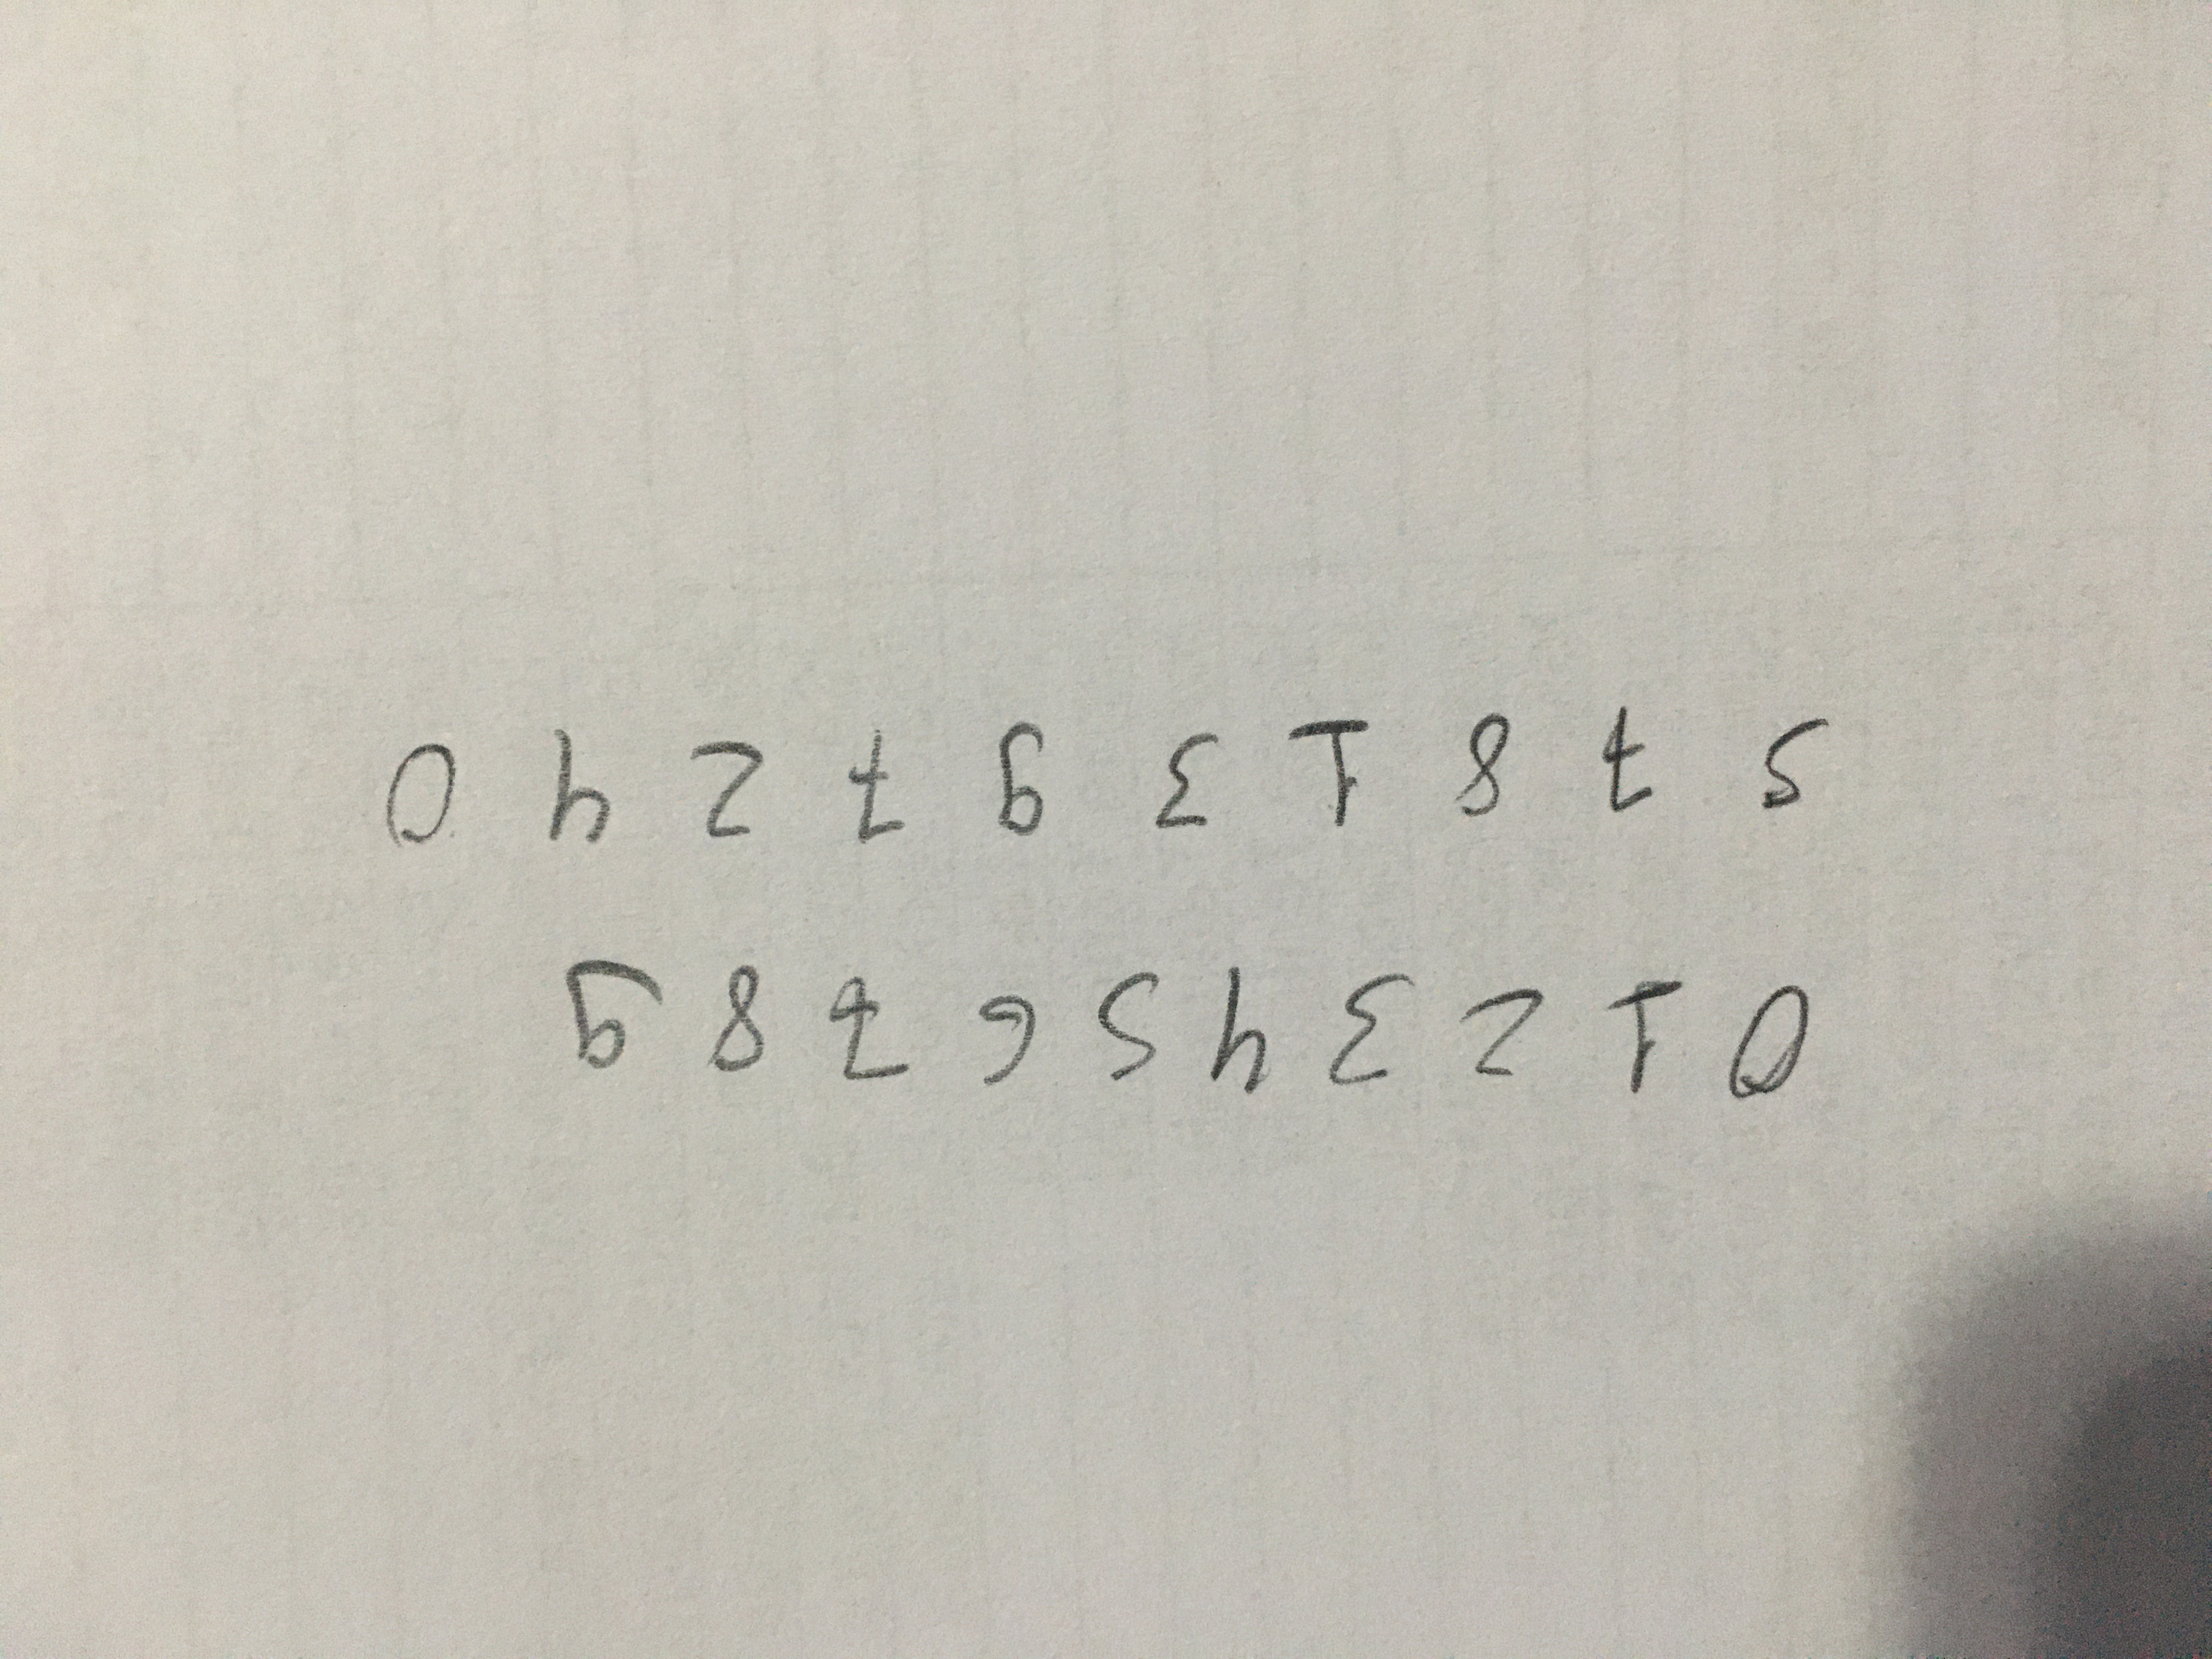 0 1 2 3 4 5 6 7 8 9
5 7 8 1 3 9 7 2 4 0